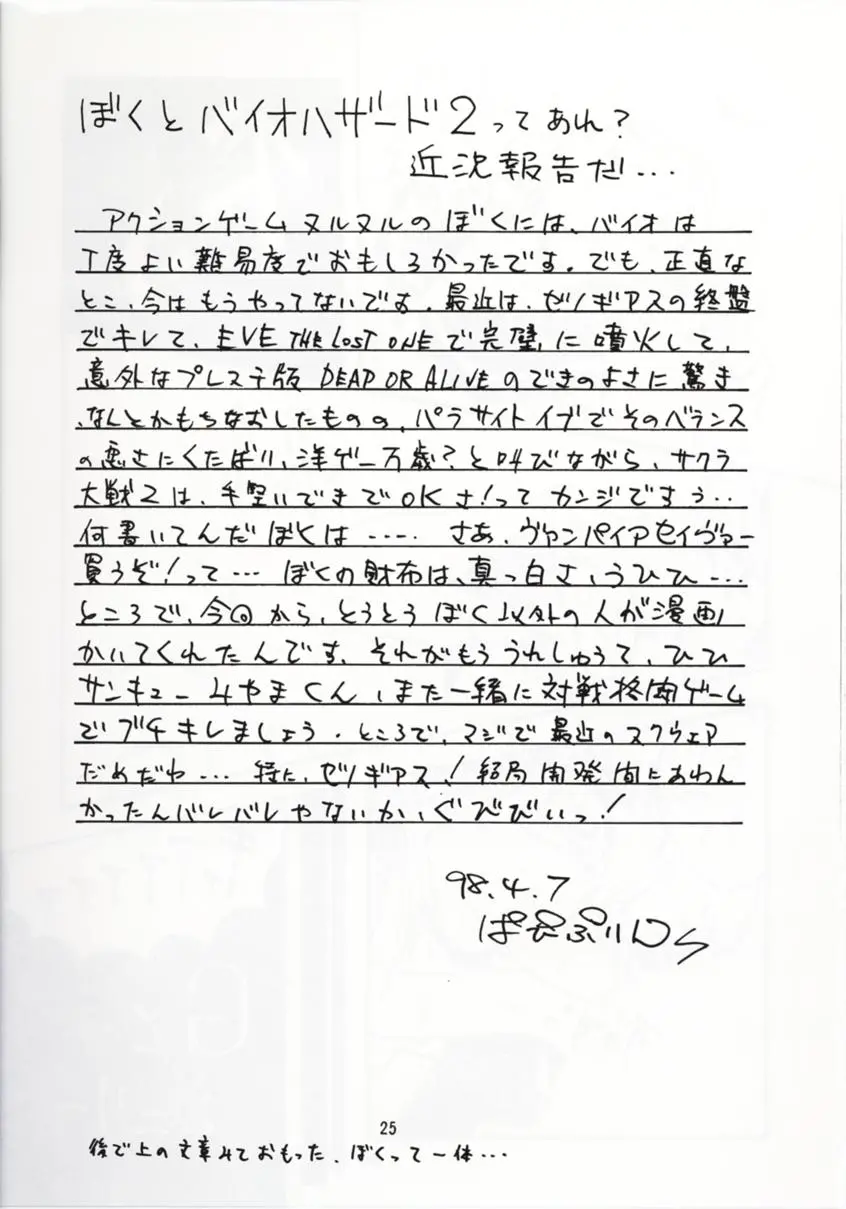 ぼくとバイオハザード2ってあれ?
近況報告だ...
アクションゲームヌルヌルのぼくには、バイオは
丁度よい難易度でおもしろかったです。でも、正直な
とこ、今はもうやってないです。最近は、ゼノギアスの終盤
でキレて、EVE THE LOST ONEで完璧に噴火して、
意外なプレステ版DEAD OR ALIVEのできのよさに驚き
、なんとかもちなおしたものの、パラサイトイブでそのベランス
の悪さにくたばり、洋ゲー万歳?と叫びながら、サクラ
大戦2は、手堅いできでOKさ!ってカンジですぅ...
何書いてんだぼくは..... さあ、ヴァンパイアセイヴァー
買うぞ!って... ぼくの財布は、真っ白さ、うひひ...
ところで、今回から、とうとうぼく以外の人が漫画
かいてくれたんです、それがもううれしゅうて、ひひ
サンキューみやまくん、また一緒に対戦格闘ゲーム
でブチキレましょう。ところで、マジで最近のスクウェア
だめだわ... 特に、ゼノギアス!結局開発間にあわん
かったんバレバレやないか、ぐびびぃっ!
98.4.7
25
後で上の文章みておもった、ぼくって一体...